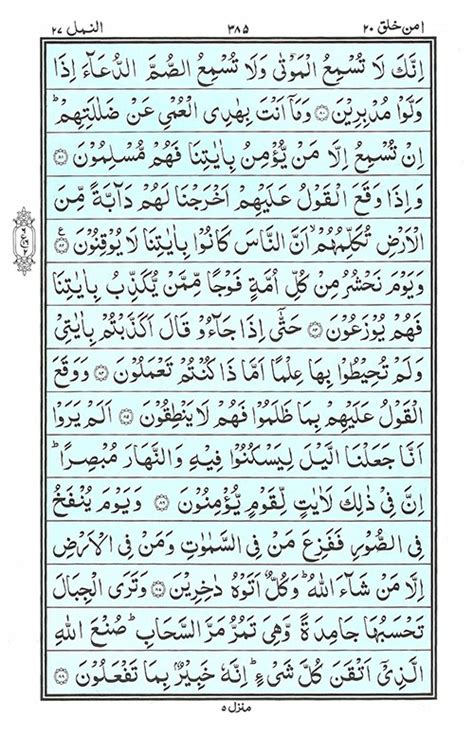 امن خلق ۲۰ ۳۸۵ النمل ۲۷
اِنَّكَ لَا تُسْمِعُ الْمَوْتٰى وَلَا تُسْمِعُ الصُّمَّ الدُّعَآءَ اِذَا
وَلَّوْا مُدْبِرِيْنَ ﴿۸۰﴾ وَمَآ اَنْتَ بِهٰدِى الْعُمْىِ عَنْ ضَلٰلَتِهِمْ ؕ
اِنْ تُسْمِعُ اِلَّا مَنْ يُّؤْمِنُ بِاٰيٰتِنَا فَهُمْ مُّسْلِمُوْنَ ﴿۸۱﴾
وَاِذَا وَقَعَ الْقَوْلُ عَلَيْهِمْ اَخْرَجْنَا لَهُمْ دَآبَّةً مِّنَ
الْاَرْضِ تُكَلِّمُهُمْ ۙ اَنَّ النَّاسَ كَانُوْا بِاٰيٰتِنَا لَا يُوْقِنُوْنَ ﴿۸۲﴾ ع
وَيَوْمَ نَحْشُرُ مِنْ كُلِّ اُمَّةٍ فَوْجًا مِّمَّنْ يُّكَذِّبُ بِاٰيٰتِنَا
فَهُمْ يُوْزَعُوْنَ ﴿۸۳﴾ حَتّٰٓى اِذَا جَآءُوْ قَالَ اَكَذَّبْتُمْ بِاٰيٰتِىْ
وَلَمْ تُحِيْطُوْا بِهَا عِلْمًا اَمَّا ذَا كُنْتُمْ تَعْمَلُوْنَ ﴿۸۴﴾ وَوَقَعَ
الْقَوْلُ عَلَيْهِمْ بِمَا ظَلَمُوْا فَهُمْ لَا يَنْطِقُوْنَ ﴿۸۵﴾ اَلَمْ يَرَوْا
اَنَّا جَعَلْنَا الَّيْلَ لِيَسْكُنُوْا فِيْهِ وَالنَّهَارَ مُبْصِرًا ؕ
اِنَّ فِىْ ذٰلِكَ لَاٰيٰتٍ لِّقَوْمٍ يُّؤْمِنُوْنَ ﴿۸۶﴾ وَيَوْمَ يُنْفَخُ
فِى الصُّوْرِ فَفَزِعَ مَنْ فِى السَّمٰوٰتِ وَمَنْ فِى الْاَرْضِ
اِلَّا مَنْ شَآءَ اللّٰهُ ؕ وَكُلٌّ اَتَوْهُ دٰخِرِيْنَ ﴿۸۷﴾ وَتَرَى الْجِبَالَ
تَحْسَبُهَا جَامِدَةً وَّهِىَ تَمُرُّ مَرَّ السَّحَابِ ؕ صُنْعَ اللّٰهِ
الَّذِىْٓ اَتْقَنَ كُلَّ شَىْءٍ ؕ اِنَّهٗ خَبِيْرٌۢ بِمَا تَفْعَلُوْنَ ﴿۸۸﴾
منزل ۵